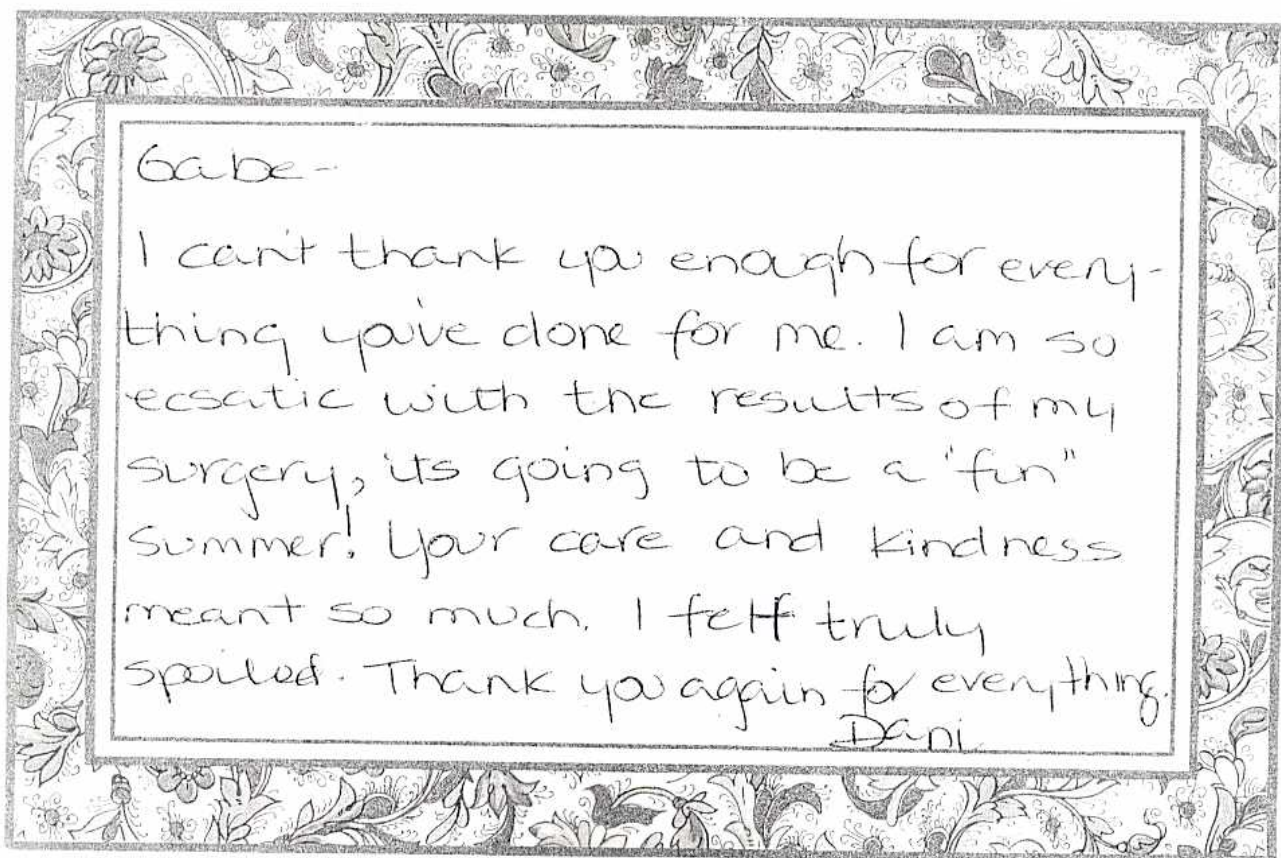 Gabe-
I can't thank you enough for every-
thing you've done for me. I am so
ecsatic with the results of my
surgery, its going to be a "fun"
summer! Your care and kindness
meant so much. I felt truly
spoiled. Thank you again for everything.
Dani